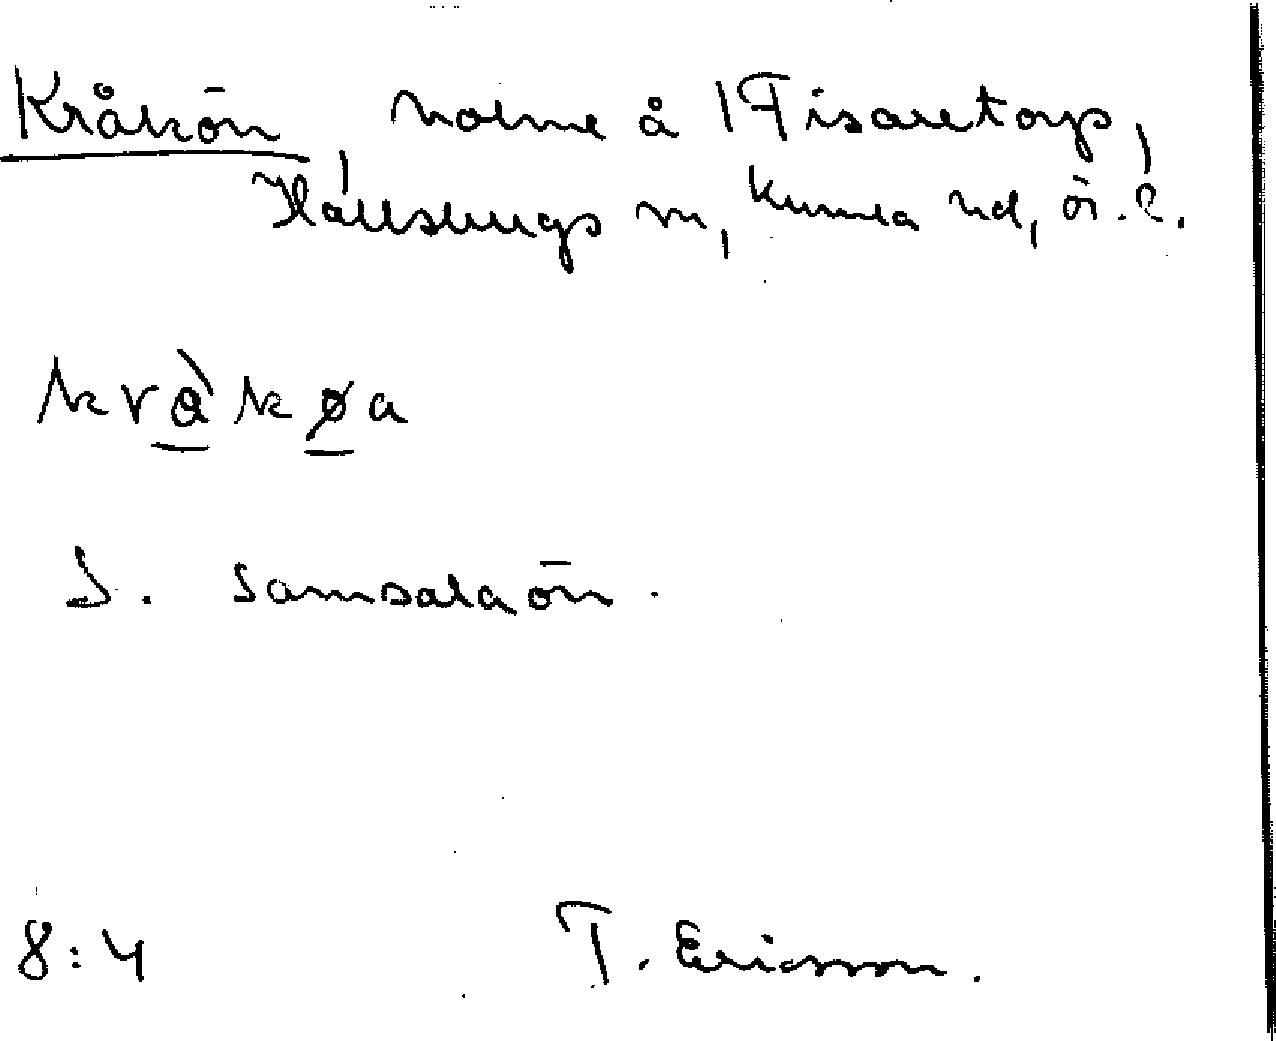 Kråkön holme å Tisaretorp,
Hallsbergs sn, Kumla hd, ör. l.
kràkøa
S. Samsalaön.
8:4 T. Ericsson.